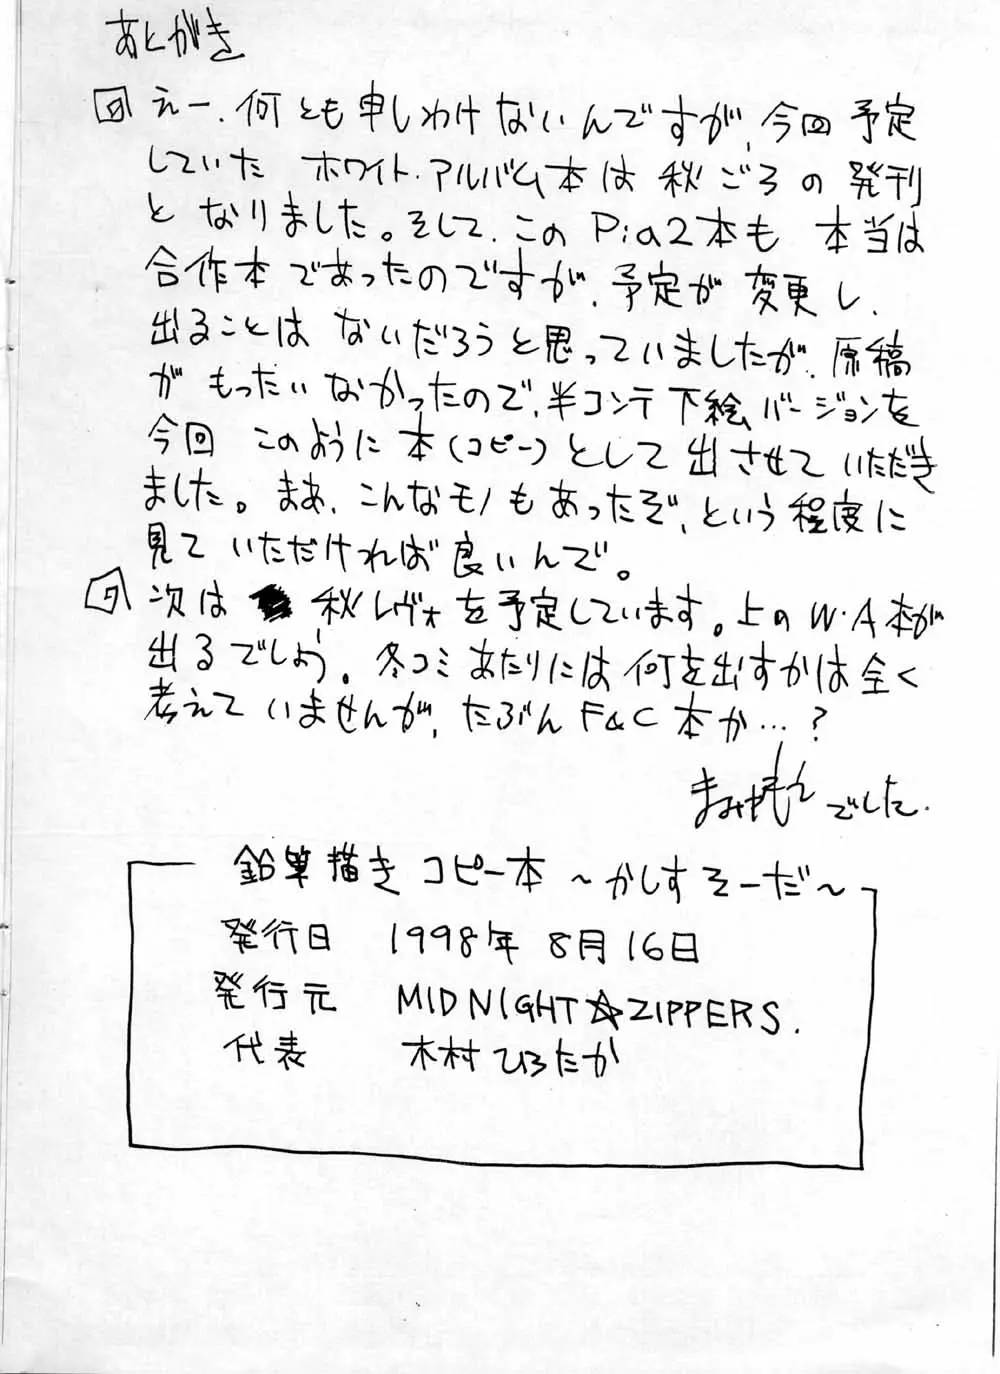 あとがき
えー、何とも申しわけないんですが、今回予定
していた ホワイト・アルバム本は 秋ごろの発刊
となりました。そして、このPia2本も 本当は
合作本であったのですが、予定が変更し、
出ることは ないだろうと思っていましたが、原稿
が もったいなかったので、半コンテ下絵バージョンを
今回 このように本(コピー)として出させていただき
ました。まあ、こんなモノもあったぞ、という程度に
見て いただければ良いんで。
次は 秋レヴォを予定しています。上のW・A本が
出るでしょう。冬コミあたりには何を出すかは全く
考えて いませんが、たぶんF&C本か…?
でした。
鉛筆描きコピー本 〜かしすそーだ〜
発行日 1998年8月16日
発行元 MIDNIGHT☆ZIPPERS.
代表 木村ひろたか